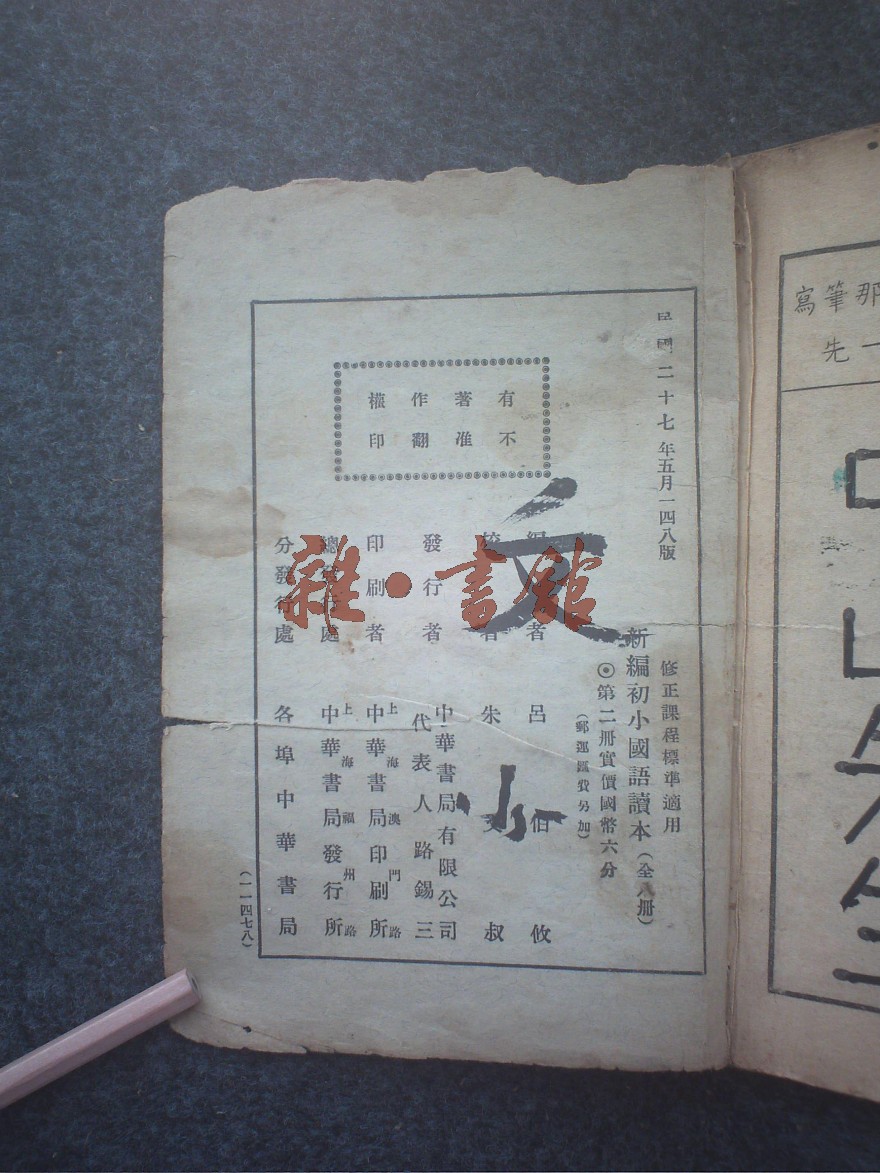 民國二十七年五月一四八版
修正課程標準適用
新編初小國語讀本（全八冊）
◉第二冊實價國幣六分
（郵運匯費另加）
有著作權
不准翻印
編者 呂伯攸
校者 朱文叔
發行者 中華書局有限公司
代表人路錫三
印刷者 上海澳門路
中華書局印刷所
總發行處 上海福州路
中華書局發行所
分發行處 各埠中華書局
（一一四七八）
文
小
雜·書館
寫筆那
先一